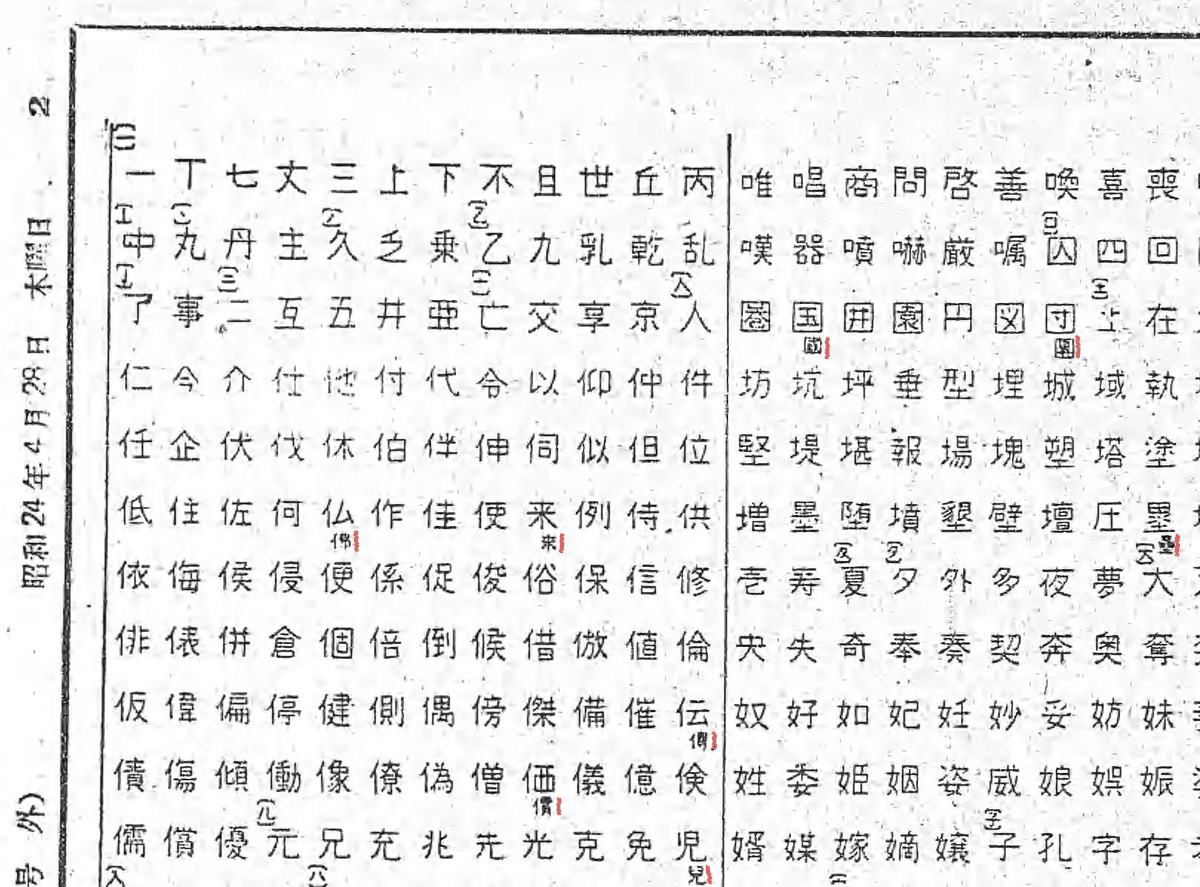 昭和24年4月28日 木曜日 2
号外)
(一)
一丁七丈三上下不且世丘丙
(丨) (丶) (丿) (乙)
中丸丹主久乏乗乙九乳乾乱
(亅) (二) (亠) (人)
了事二互五井亜亡交享京人
仁今介仕他付代令以仰仲件
任企伏伐休伯伴伸伺似但位
低住佐何仏作佳使来例侍供
佛 來
依侮侯侵便係促俊俗保信修
俳俵併倉個倍倒候借倣値倫
仮偉偏停健側偶傍傑備催伝
傳
債傷傾働像僚偽僧価儀億倹
(儿) 價
儒償優元兄充兆先光克免児
(入) (八) 兒
唯唱商問啓善喚喜喪
(囗)
嘆器噴嚇厳嘱囚四回
(土)
圏国囲園円図寸土在
國 團
坊坑坪垂型埋城域執
堅堤堪報場塊塑塔塗
増墨堕墳墾壁壇圧塁
(夊) (夕) (大) 壘
壱寿夏夕外多夜夢大
央失奇奉奏契奔奥奪
奴好如妃妊妙妥妨妹
姓委姫姻姿威娘娯娠
(子)
婿媒嫁嫡嬢子孔字存